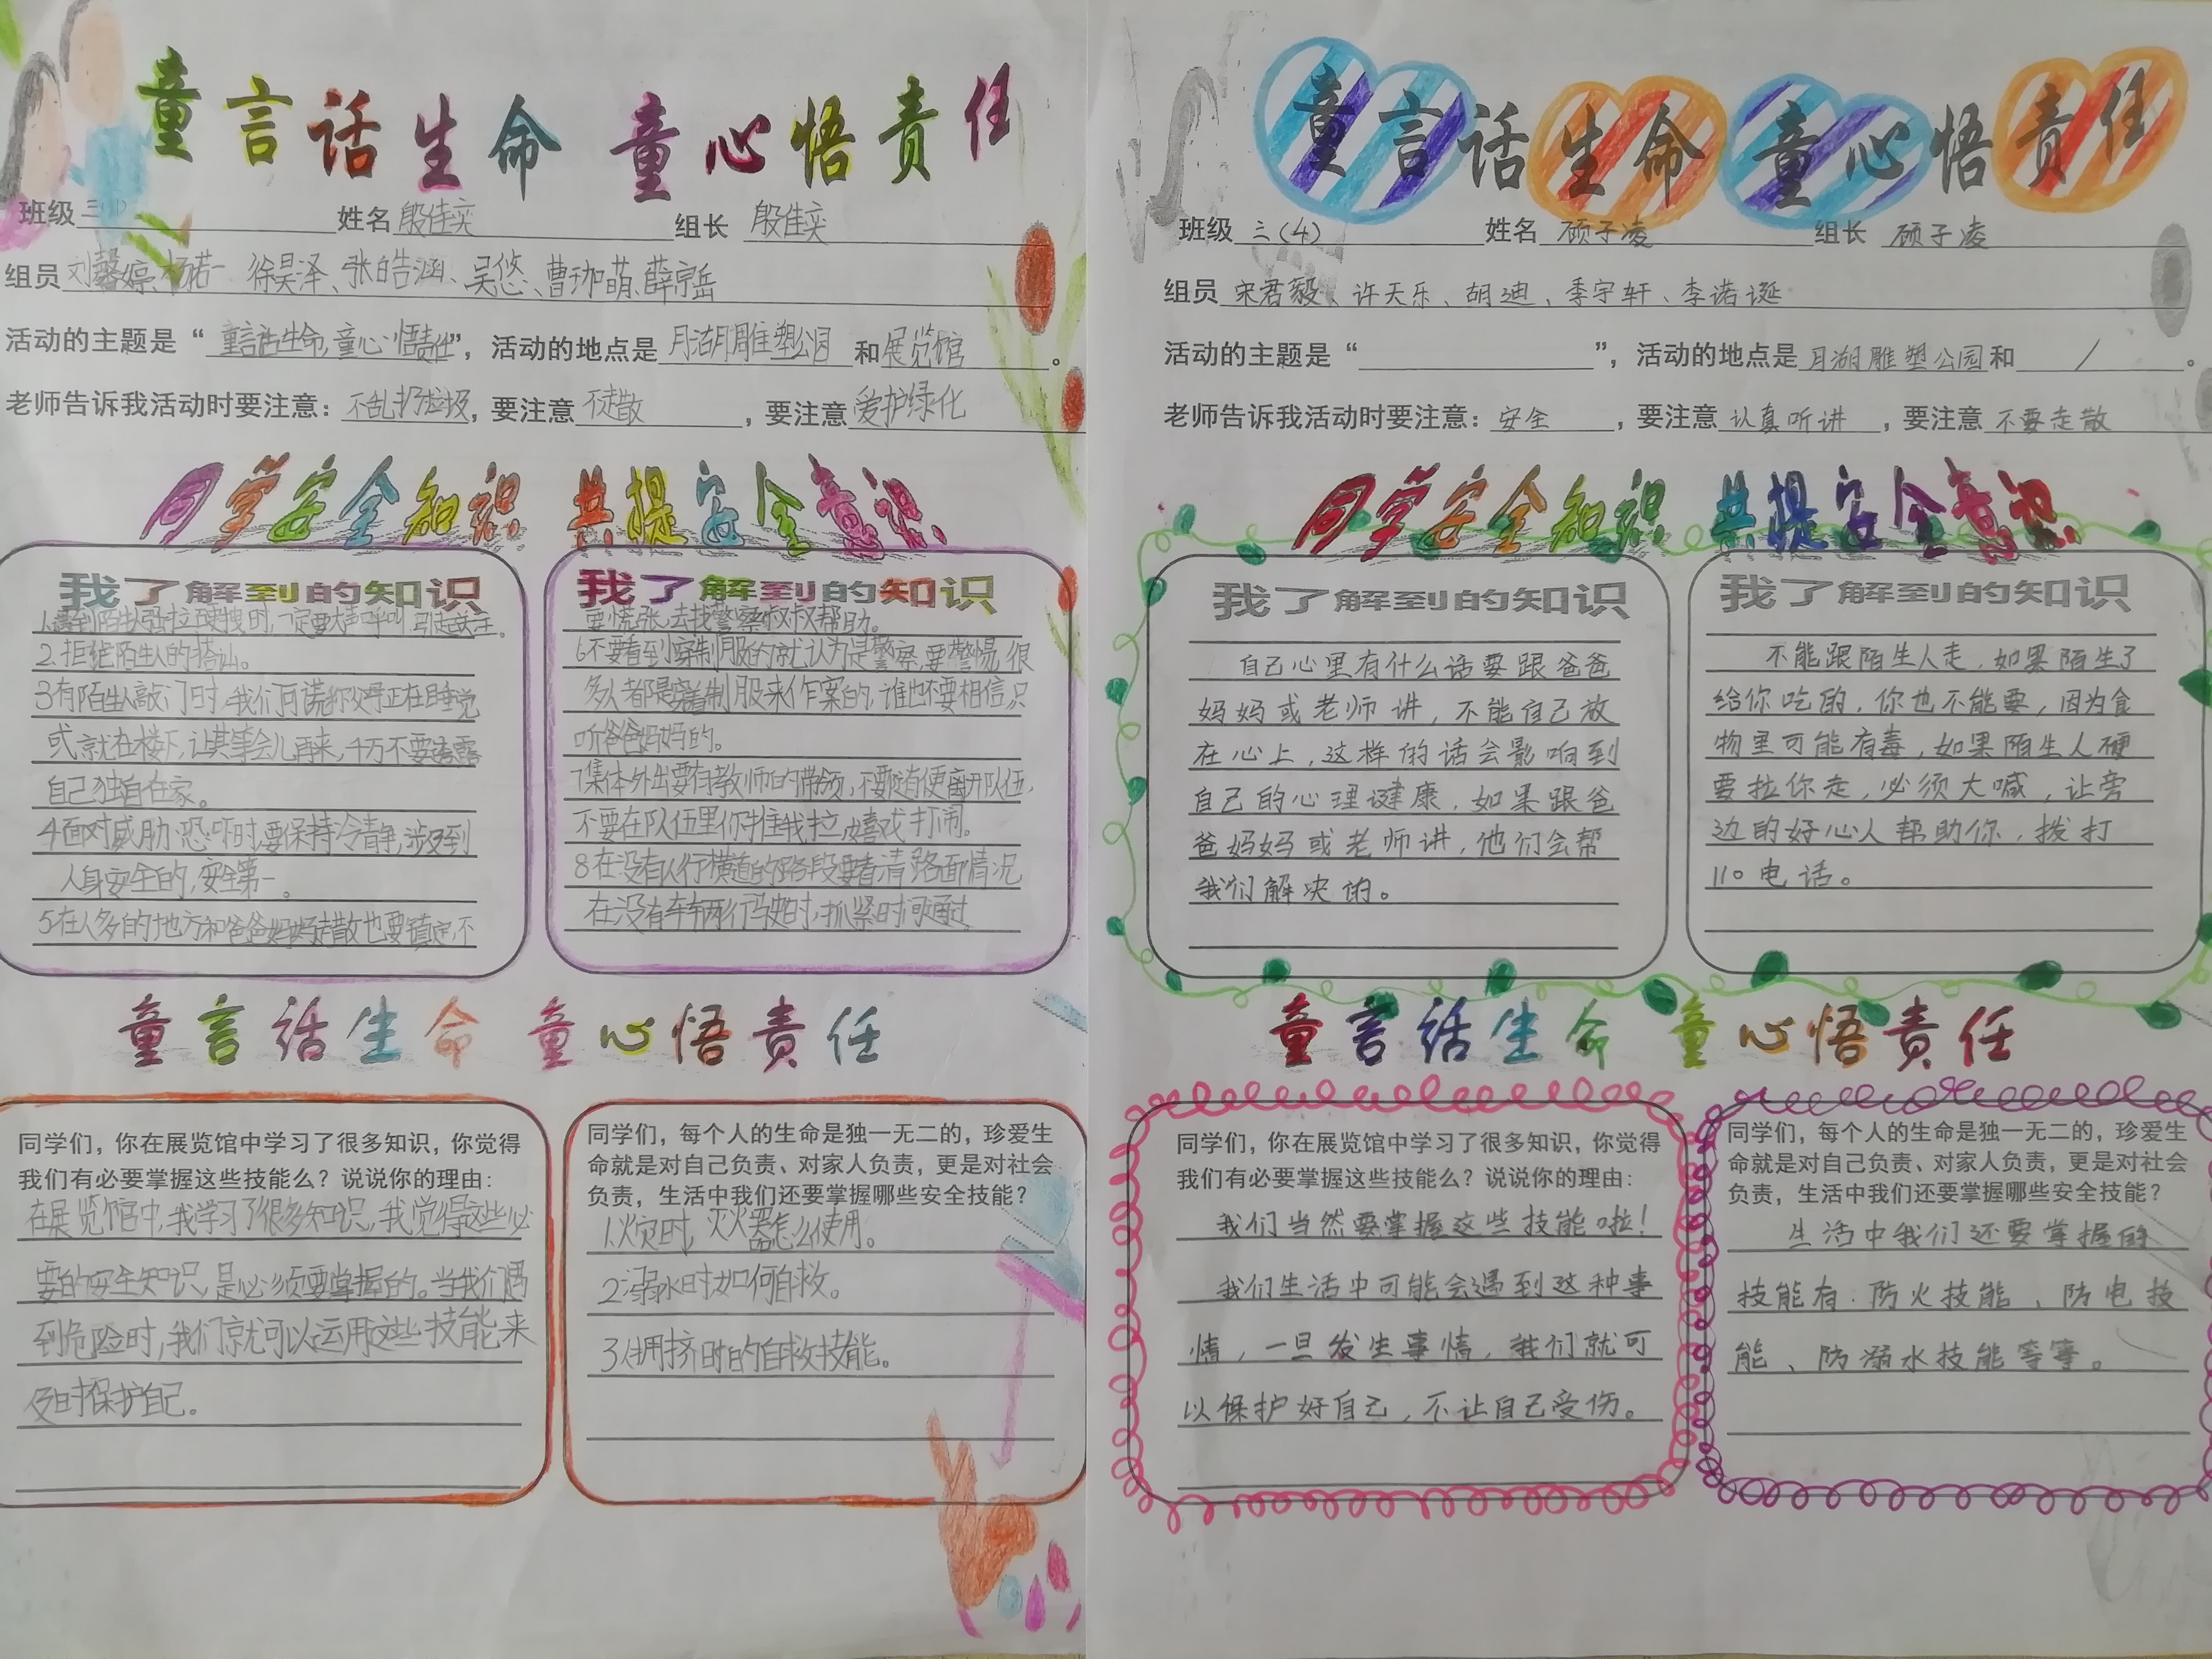 童言话生命 童心悟责任
班级 三(1) 姓名 殷佳奕 组长 殷佳奕
组员 刘馨婷、杨若一 徐昊泽、张皓涵、吴悠、曹珈萌、薛宗岳
活动的主题是“童言话生命,童心悟责任”，活动的地点是 月湖雕塑公园 和 展览馆 。
老师告诉我活动时要注意：不乱扔垃圾，要注意 走散 ，要注意 爱护绿化
同学安全知识 共提安全意识
我了解到的知识
1.遇到陌生人强拉硬拽时,一定要大声呼叫 引起关注。
2.拒绝陌生人的搭讪。
3有陌生人敲门时,我们可谎称父母正在睡觉
或就在楼下,让其等会儿再来,千万不要透露
自己独自在家。
4面对威胁、恐吓时,要保持冷静,涉及到
人身安全的,安全第一。
5在人多的地方和爸爸妈妈走散也要镇定,不
我了解到的知识
要慌张,去找警察叔叔帮助。
6不要看到穿制服的就认为是警察,要警惕,很
多人都是穿着制服来作案的,谁也不要相信,只
听爸爸妈妈的。
7集体外出要有教师的带领,不要随便离开队伍,
不要在队伍里你推我拉,嬉戏打闹。
8在没有人行横道的路段要看清路面情况
在没有车辆行驶时,抓紧时间通过
童言话生命 童心悟责任
同学们，你在展览馆中学习了很多知识，你觉得
我们有必要掌握这些技能么？说说你的理由：
在展览馆中,我学习了很多知识,我觉得这些必
要的安全知识,是必须要掌握的。当我们遇
到危险时,我们就可以运用这些技能来
及时保护自己。
同学们，每个人的生命是独一无二的，珍爱生
命就是对自己负责、对家人负责，更是对社会
负责，生活中我们还要掌握哪些安全技能？
1.火灾时,灭火器怎么使用。
2.溺水时如何自救。
3.拥挤时的自救技能。
童言话生命 童心悟责任
班级 三(4) 姓名 顾子凌 组长 顾子凌
组员 宋君毅、许天乐、胡迪、季宇轩、李诺诞
活动的主题是“ ”，活动的地点是 月湖雕塑公园 和 / 。
老师告诉我活动时要注意：安全，要注意 认真听讲 ，要注意 不要走散
同学安全知识 共提安全意识
我了解到的知识
自己心里有什么话要跟爸爸
妈妈或老师讲，不能自己放
在心上，这样的话会影响到
自己的心理健康，如果跟爸
爸妈妈或老师讲，他们会帮
我们解决的。
我了解到的知识
不能跟陌生人走，如果陌生了
给你吃的，你也不能要，因为食
物里可能有毒，如果陌生人硬
要拉你走，必须大喊，让旁
边的好心人帮助你，拨打
110电话。
童言话生命 童心悟责任
同学们，你在展览馆中学习了很多知识，你觉得
我们有必要掌握这些技能么？说说你的理由：
我们当然要掌握这些技能啦！
我们生活中可能会遇到这种事
情，一旦发生事情，我们就可
以保护好自己，不让自己受伤。
同学们，每个人的生命是独一无二的，珍爱生
命就是对自己负责、对家人负责，更是对社会
负责，生活中我们还要掌握哪些安全技能？
生活中我们还要掌握的
技能有：防火技能、防电技
能、防溺水技能等等。